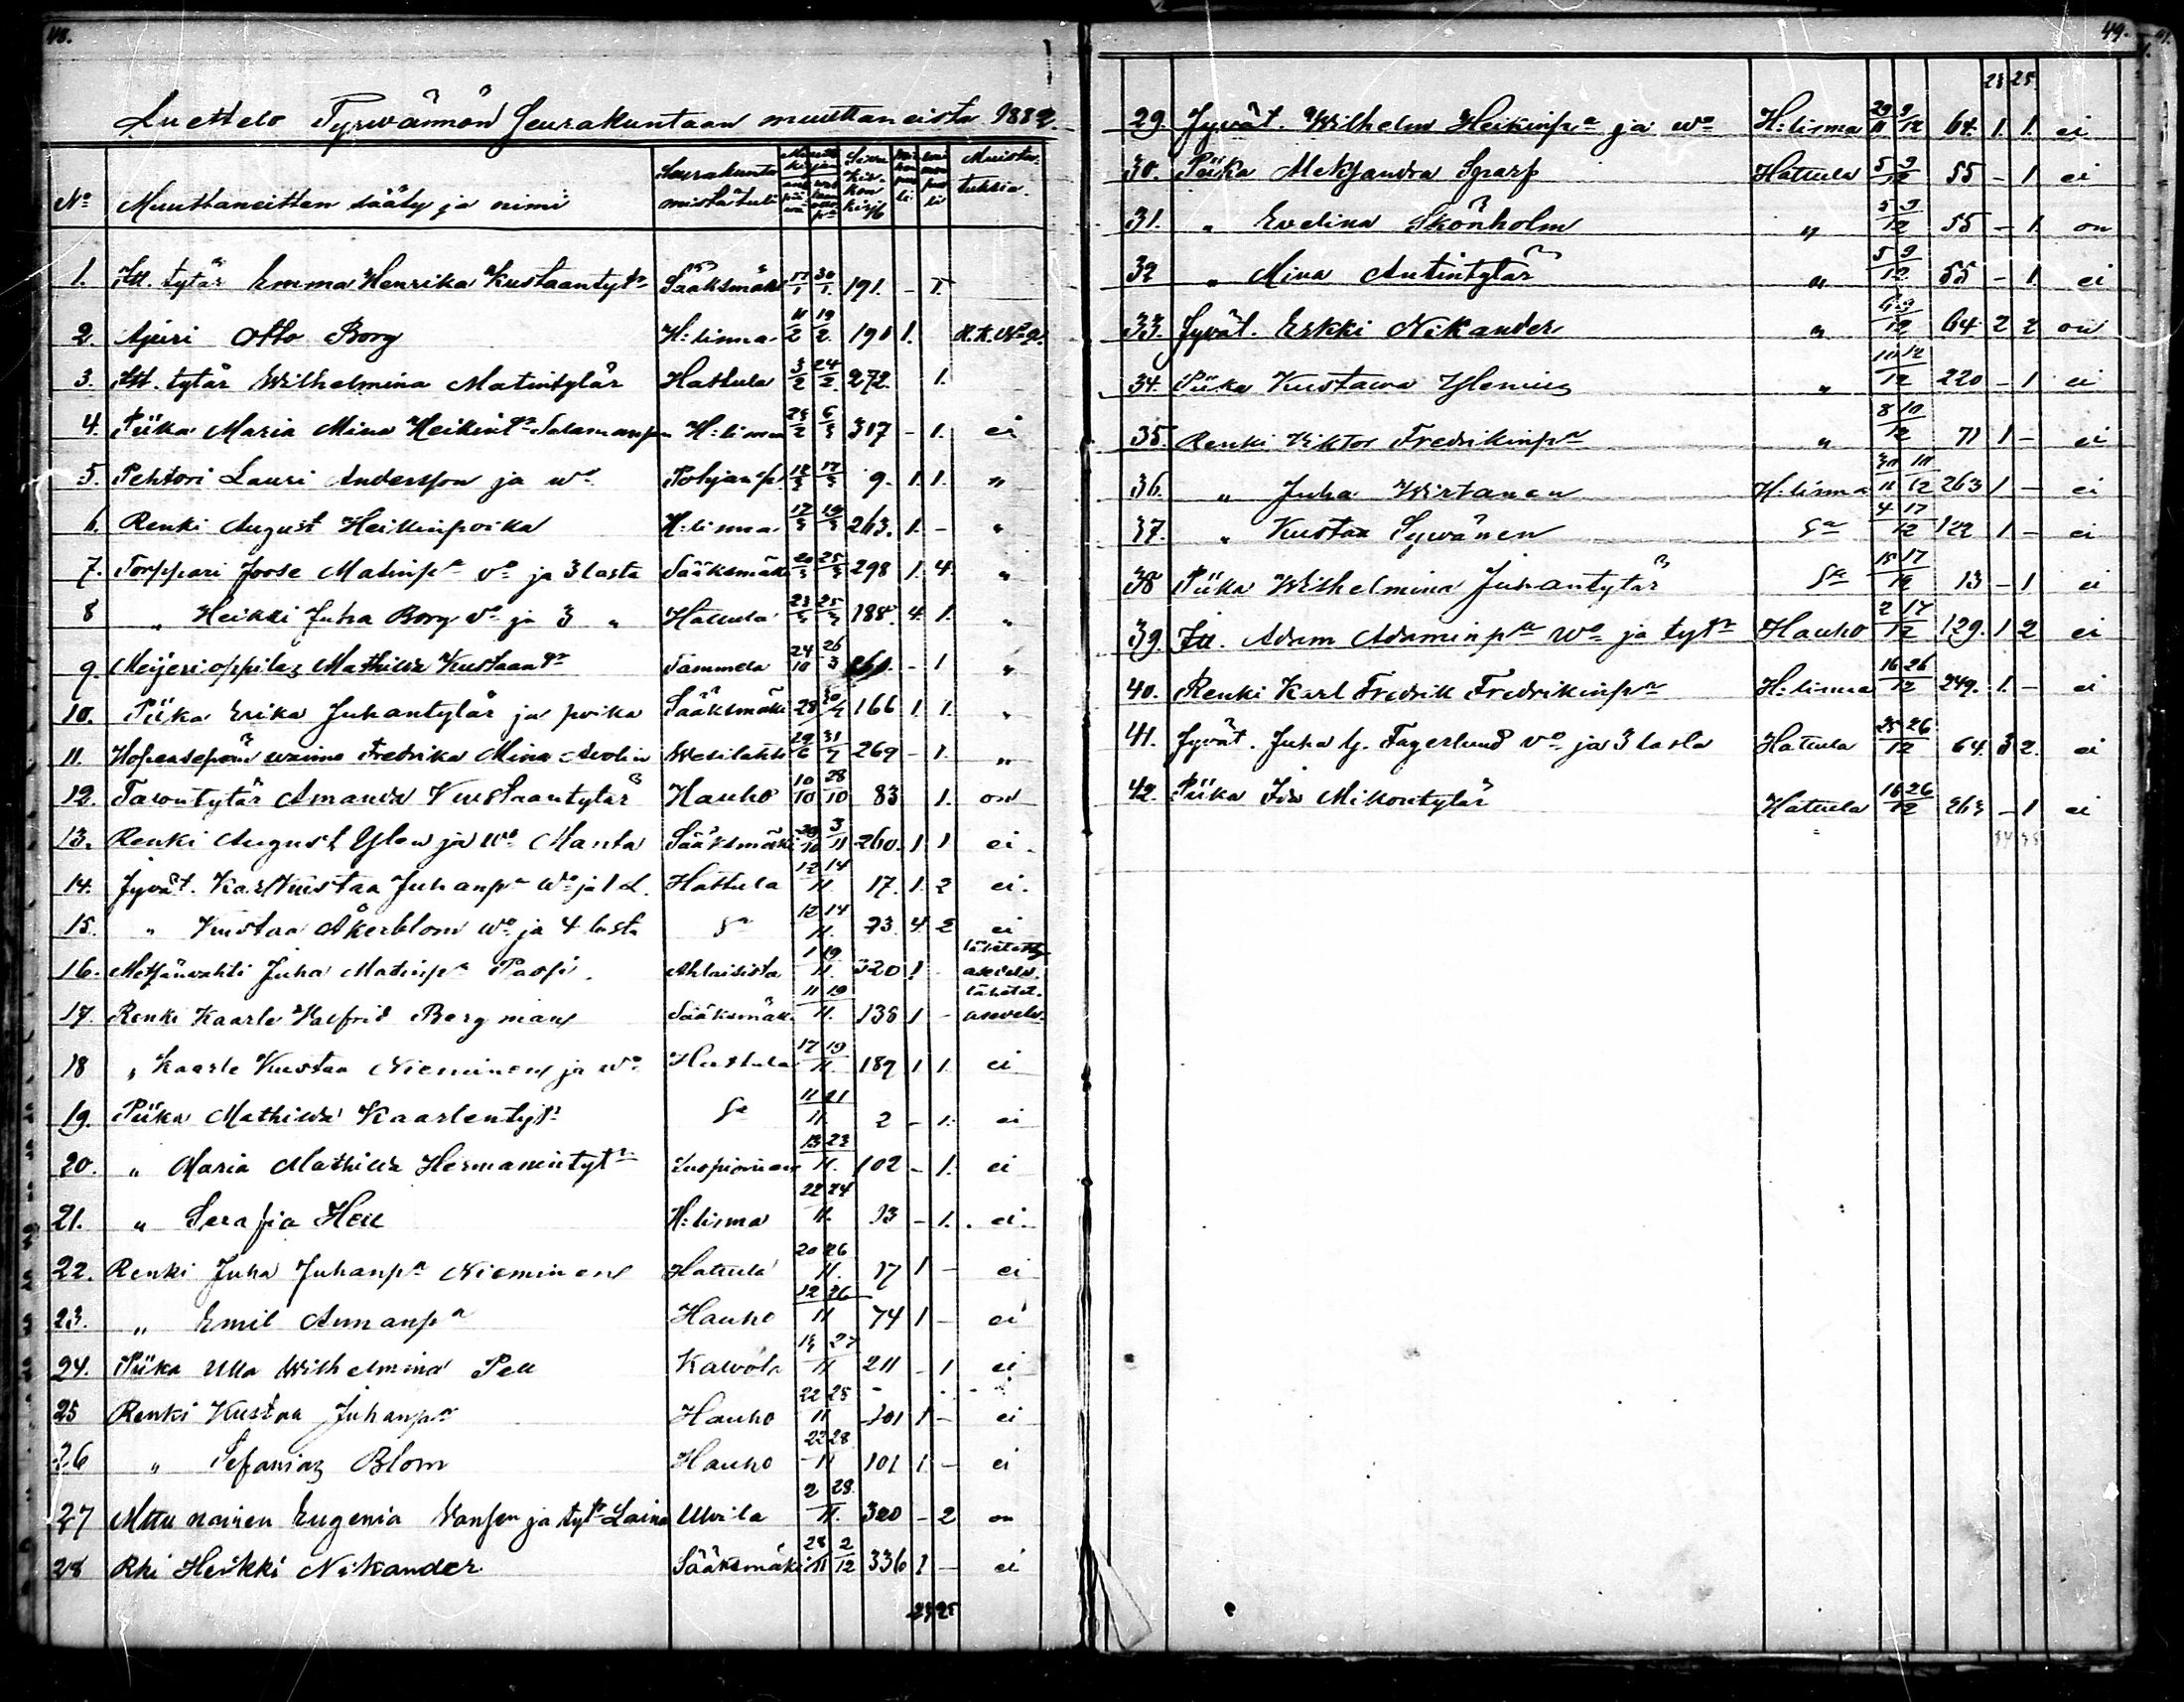 48.
Luettelo Tyrwännön Seurakuntaan muuttaneista 1882.
No Muuttaneitten sääty ja nimi Seurakunta mistä tuli Muistutuksia.
1. Itt. tytär Emma Henrika Kustaantyt. Sääksmäki 17/1 30/1. 191. - 1.
2. Ajuri Otto Borg H:linna 11/2 19/2 191 1.
3. Itt. tytär Wilhelmina Matintytär Hattula 3/2 24/2. 272. 1.
4. Piika Maria Mina Heikint. H:linna 317 - 1. ei
5. Pehtori Lauri Andersson ja wo Pohjanp. 9. 1. 1. "
6. Renki August Heikinpoika H:linna 263. 1. - "
7. Torppari Joose Matinpa vo ja 3 lasta Sääksmäki 298 1. 4. "
8 " Heikki Juha Borg vo ja 3 " Hattula 188. 4. 1. "
9. Meijerioppilas Mathilda Kustaant. Tammela 24/10 26/3 - 1 "
10. Piika Erika Juhantytär ja poika Sääksmäki 166 1. 1. "
11. Hopeasepän waimo Fredrika Mina Wesilahti 29/6 31/7 269 - 1. "
12. Talontytär Amanda Kustaantytär Hauho 10/10 28/10 83 1. on
13. Renki August Ylen ja wo Manta Sääksmäki 3/11 260. 1 1 ei.
14. Jyvät. Karl Kustaa Juhanpa wo ja 1 L. Hattula 12 14/11. 17. 1. 2 ei.
15. " Kustaa Åkerblom wo ja 4 lasta Sa 12 14/11. 73. 4. 2 ei
16. Metsänvahti Juha Matinpa Ahlaisista 1 19/11. 320 1.
17. Renki Kaarle Walfrid Bergman Sääksmäki 11 19/11. 138 1 -
18 " Kaarle Kustaa Nieminen ja wo Hattula 17 19/11. 189 1 1. ei
19. Piika Mathilda Kaarlentyt. Sa 11 21/11. 2 - 1. ei
20. " Maria Mathilda Hermanintyt. 13 23/11. 102 - 1. ei
21. " Serafia Hell H:linna 22 24/11. 13 - 1. ei.
22. Renki Juha Juhanpa Nieminen Hattula 20 26/11. 17 1 - ei
23. " Emil Annanpa Hauho 12 26/11 74 1 - ei
24. Piika Ulla Wilhelmina Pell Kalvola 211 - 1 ei
25 Renki Kustaa Juhanpa Hauho 22 28/11 101 1 - ei
26 " Sefanias Blom Hauho 22 28/11 101 1. - ei
27 Mttu nainen Eugenia ja tyt. Laina Ulvila 2 28/11. 320 - 2 on
28 Rki Heikki Nikander Sääksmäki 28/11 2/12 336 1 - ei
23 25
49.
23 25
29. Jyvät. Wilhelm Heikinpa ja wo H:linna 29/11 9/12 64. 1. 1. ei
30. Piika Aleksandra Sparf Hattula 5 9/12 55 - 1 ei
31. " Evelina Skönholm " 5 9/12 55 - 1. on
32 " Mina Antintytär " 5 9/12 55 - 1. ei
33. Jyvät. Erkki Nikander " 64 2 2 on
34. Piika Kustawa Ylenius " 10 12/12 220 - 1 ei
35. Renki Viktor Fredrikinpa " 8 10/12 71 1 - ei
36. " Juha Wirtanen H:linna 30/11 10/12 263 1 - ei
37. " Kustaa Sywänen Sa 4 17/12 122 1 - ei
38 Piika Wilhelmina Juhantytär Sa 15 17/12 13 - 1 ei
39. Itt. Adam Adaminpa wo ja tyt. Hauho 2 17/12 129. 1 2 ei
40. Renki Karl Fredrik Fredrikinpa H:linna 16 26/12 249. 1. - ei
41. Jyvät. Juha G. Fagerlund vo ja 3 lasta Hattula 25 26/12 64. 3 2. ei
42. Piika Ida Mikontytär Hattula 16 26/12 263 - 1 ei